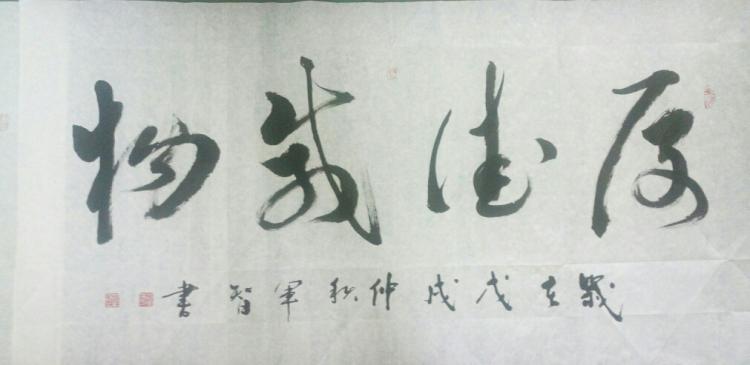 厚德载物
岁在戊戌仲秋军智书